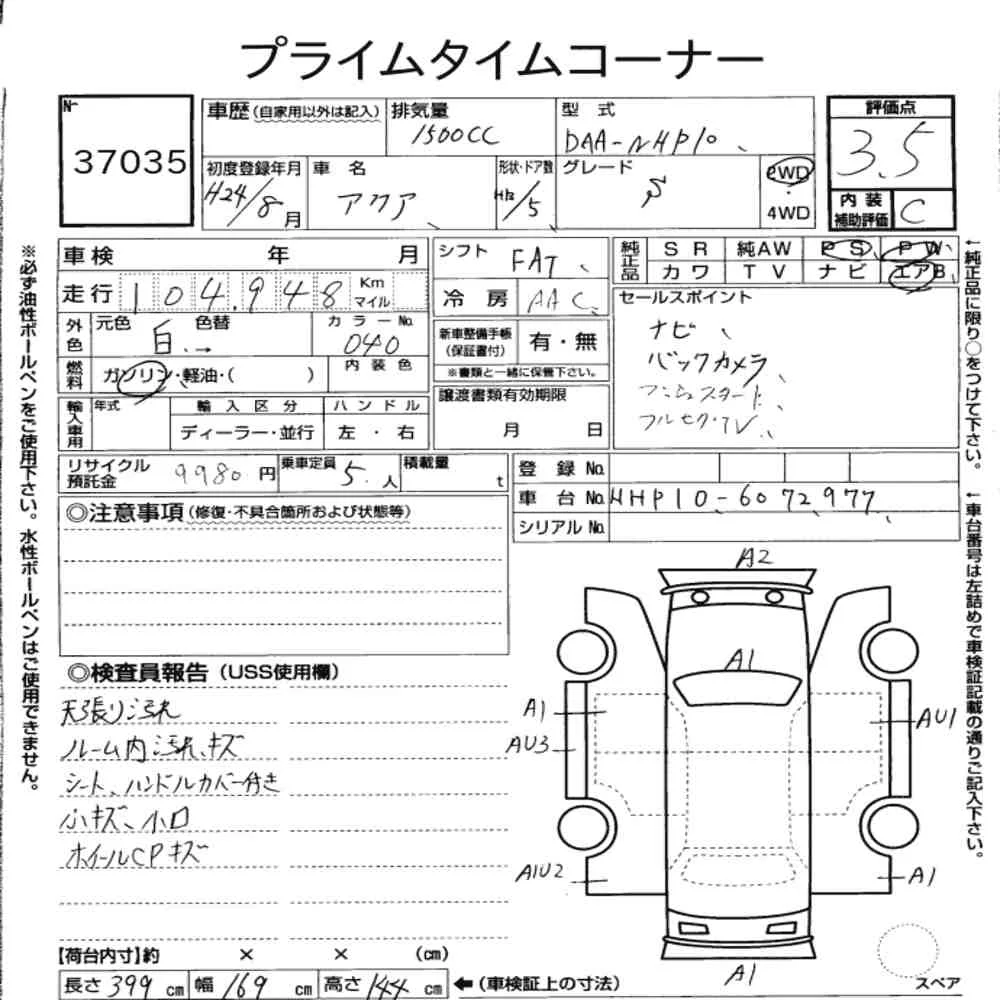 プライムタイムコーナー
No 37035
車歴(自家用以外は記入) 排気量 1500CC 型式 DAA-NHP10 評価点 3.5
初度登録年月 H24/8月 車名 アクア 形状・ドア数 H/B/5 グレード S 2WD・4WD
内装補助評価 C
車検 年 月
シフト FAT
純正品 SR 純AW PS PW
カワ TV ナビ エアB
走行 104,948 Km マイル
冷房 AAC
セールスポイント
ナビ
バックカメラ
プッシュスタート
フルセグ・TV
外色 元色 白 色替 → カラーNo. 040
新車整備手帳(保証書付) 有・無
※書類と一緒に保管下さい。
燃料 ガソリン・軽油・( ) 内装色
譲渡書類有効期限
月 日
輸入車用 年式 輸入区分 ハンドル
ディーラー・並行 左・右
リサイクル預託金 9980円 乗車定員 5人 積載量 t
登録No.
車台No. NHP10-6072977
シリアルNo.
◎注意事項(修復・不具合箇所および状態等)
◎検査員報告(USS使用欄)
天張り汚れ
ルーム内汚れ、キズ
シート、ハンドルカバー付き
小キズ、小凹
ホイールCPキズ
A2
A1
A1
AU1
AU3
A1U2
A1
A1
スペア
【荷台内寸】約 × × (cm)
長さ 399 cm 幅 169 cm 高さ 144 cm ←(車検証上の寸法)
※必ず油性ボールペンをご使用下さい。水性ボールペンはご使用できません。
←純正品に限り○をつけて下さい。
←車台番号は左詰めで車検証記載の通りご記入下さい。